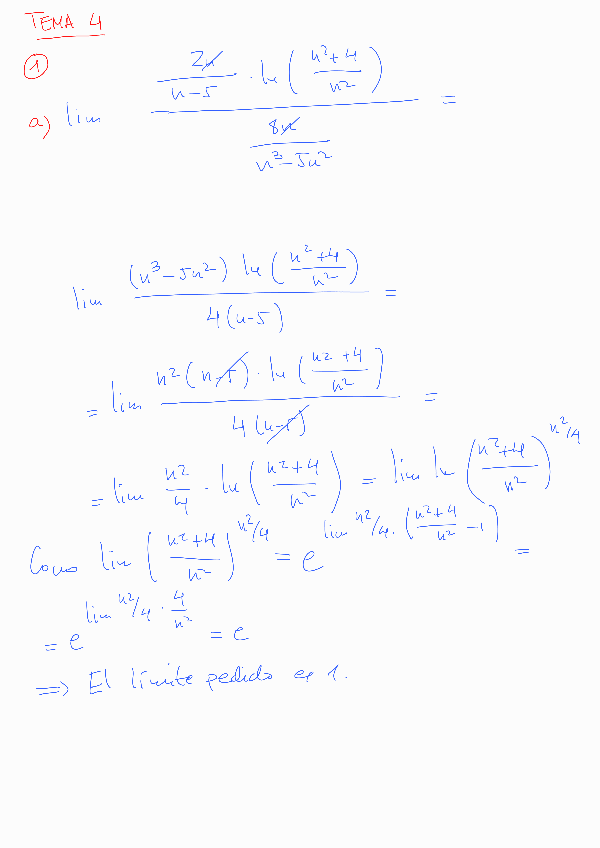 TEMA 4
①
a) lim \frac{\frac{2n}{n-5} · ln(\frac{n²+4}{n²})}{\frac{8n}{n³-5n²}} =
lim \frac{(n³-5n²) ln(\frac{n²+4}{n²})}{4(n-5)} =
= lim \frac{n²(n-5) · ln(\frac{n²+4}{n²})}{4(n-5)} =
= lim \frac{n²}{4} · ln(\frac{n²+4}{n²}) = lim ln(\frac{n²+4}{n²})^{n²/4}
Como lim (\frac{n²+4}{n²})^{n²/4} = e^{lim n²/4 · (\frac{n²+4}{n²} - 1)} =
= e^{lim n²/4 · \frac{4}{n²}} = e
=> El límite pedido es 1.